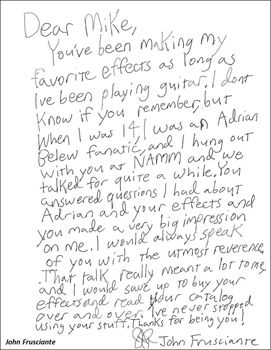 Dear Mike,
You've been making my
favorite effects as long as
I've been playing guitar. I dont
know if you remember, but
when I was 14, I was an Adrian
Belew fanatic, and I hung out
with you at NAMM and we
talked for quite a while. You
answered questions I had about
Adrian and your effects and
you made a very big impression
on me. I would always speak
of you with the utmost reverence
. That talk really meant a lot to me,
and I would save up to buy your
effects and read your catalog
over and over. I've never stopped
using your stuff. Thanks for being you!
John Frusciante
John Frusciante